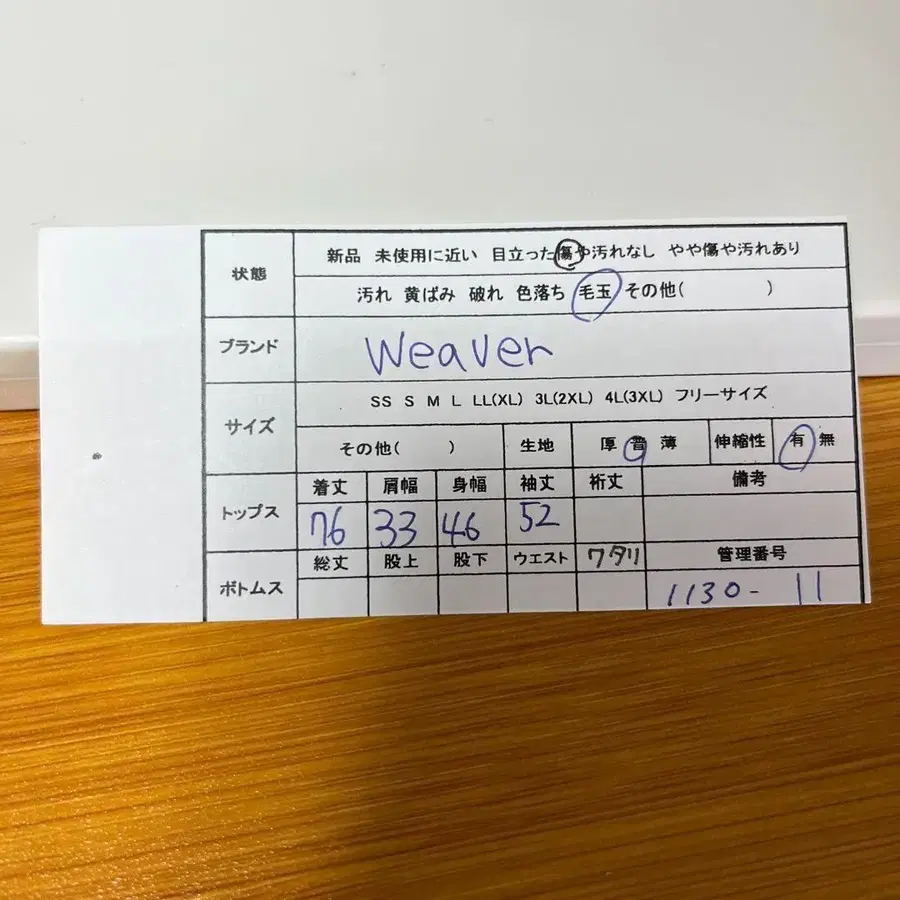 状態 新品 未使用に近い 目立った傷や汚れなし やや傷や汚れあり
汚れ 黄ばみ 破れ 色落ち 毛玉 その他( )
ブランド Weaver
サイズ SS S M L LL(XL) 3L(2XL) 4L(3XL) フリーサイズ
その他( ) 生地 厚 普 薄 伸縮性 有 無
トップス 着丈 肩幅 身幅 袖丈 裄丈 備考
76 33 46 52
ボトムス 総丈 股上 股下 ウエスト ワタリ 管理番号
1130-11